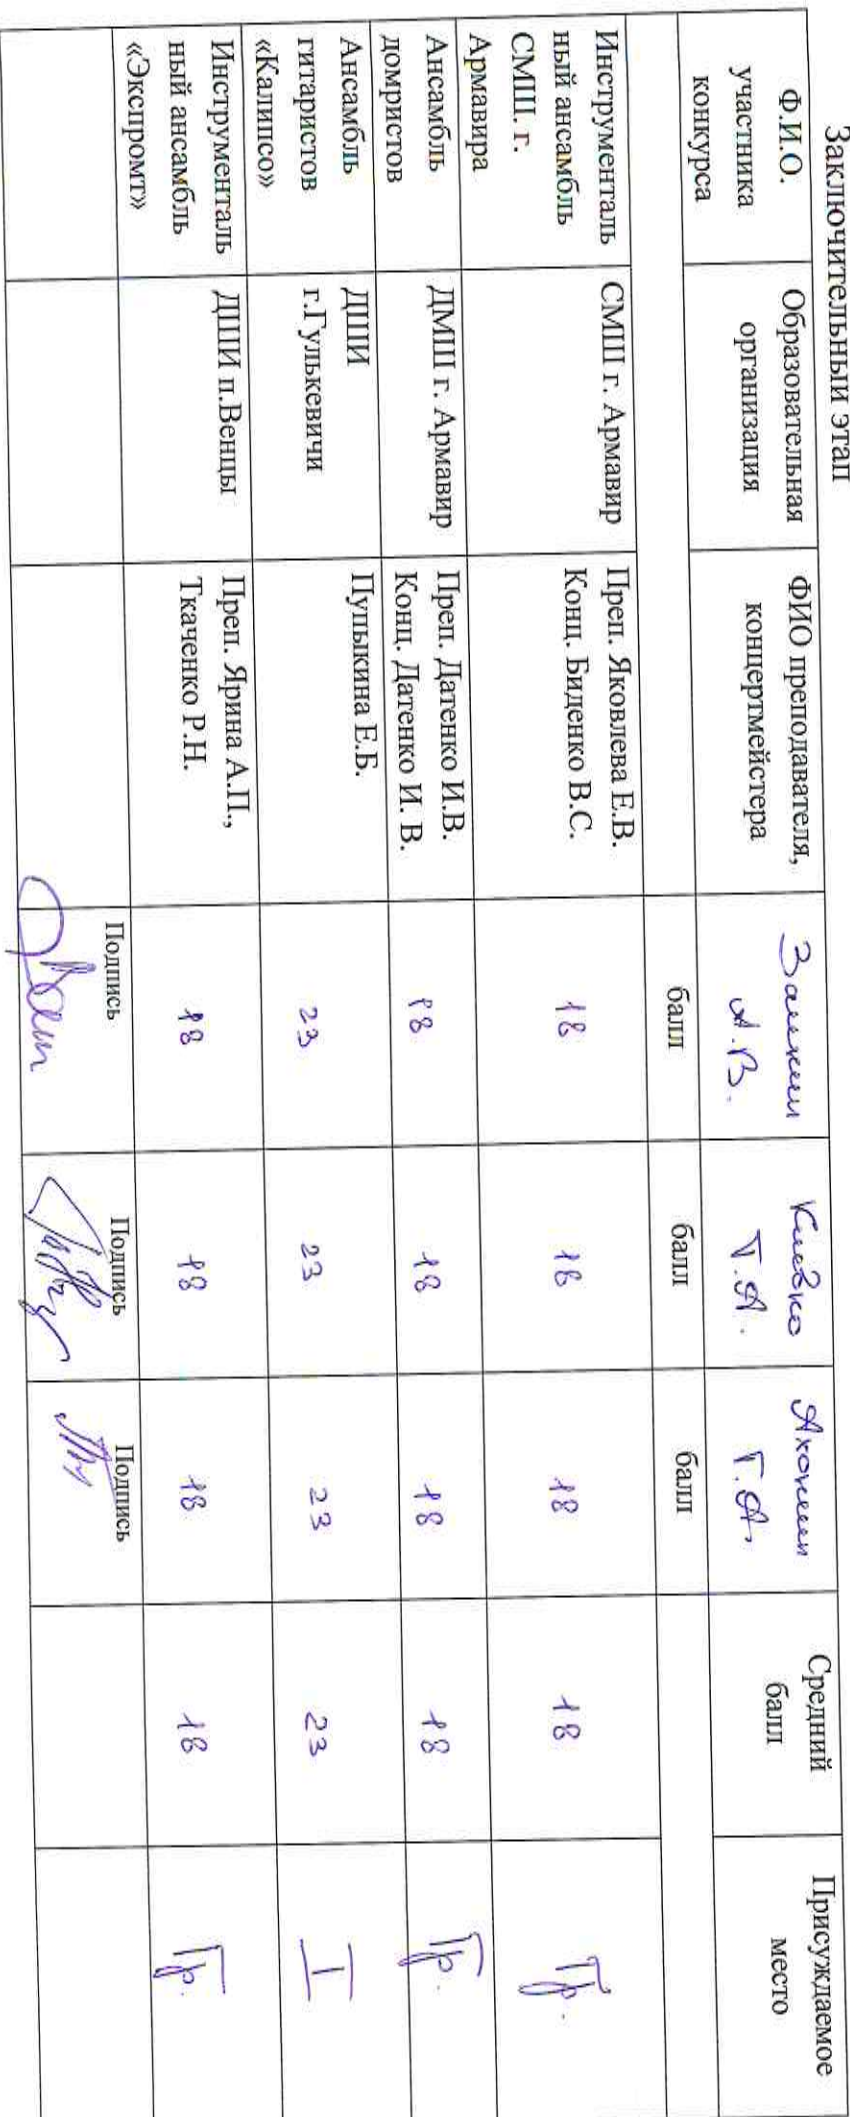 Заключительный этап
Ф.И.О.
участника
конкурса
Образовательная
организация
ФИО преподавателя,
концертмейстера
А.В.
Т.А.
Г.А.
Средний
балл
Присуждаемое
место
балл
балл
балл
Инструменталь
ный ансамбль
СМШ. г.
Армавира
СМШ г. Армавир
Преп. Яковлева Е.В.
Конц. Биденко В.С.
18
18
18
18
Гр.
Ансамбль
домристов
ДМШ г. Армавир
Преп. Датенко И.В.
Конц. Датенко И. В.
18
18
18
18
Гр.
Ансамбль
гитаристов
«Калипсо»
ДШИ
г.Гулькевичи
Пупыкина Е.Б.
23
23
23
23
I
Инструменталь
ный ансамбль
«Экспромт»
ДШИ п.Венцы
Преп. Ярина А.П.,
Ткаченко Р.Н.
18
18
18
18
Гр.
Подпись
Подпись
Подпись